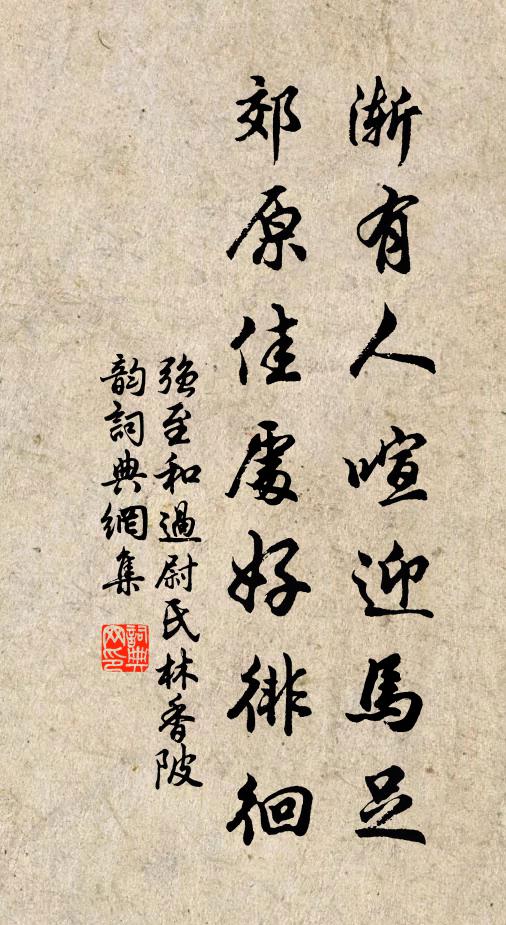 漸有人喧迎馬足
郊原佳處好徘徊
強至和過尉氏林香陂
韵詞典網集
詞典网印